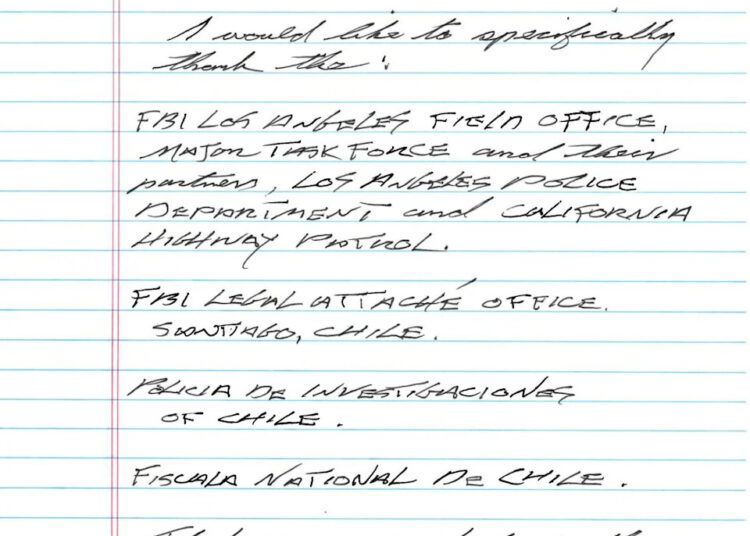 I would like to specifically
thank the :
FBI LOS ANGELES FIELD OFFICE,
MAJOR TASK FORCE and their
partners, LOS ANGELES POLICE
DEPARTMENT and CALIFORNIA
HIGHWAY PATROL.
FBI LEGAL ATTACHÉ OFFICE.
SANTIAGO, CHILE.
POLICIA DE INVESTIGACIONES
OF CHILE.
FISCALA NATIONAL De CHILE.